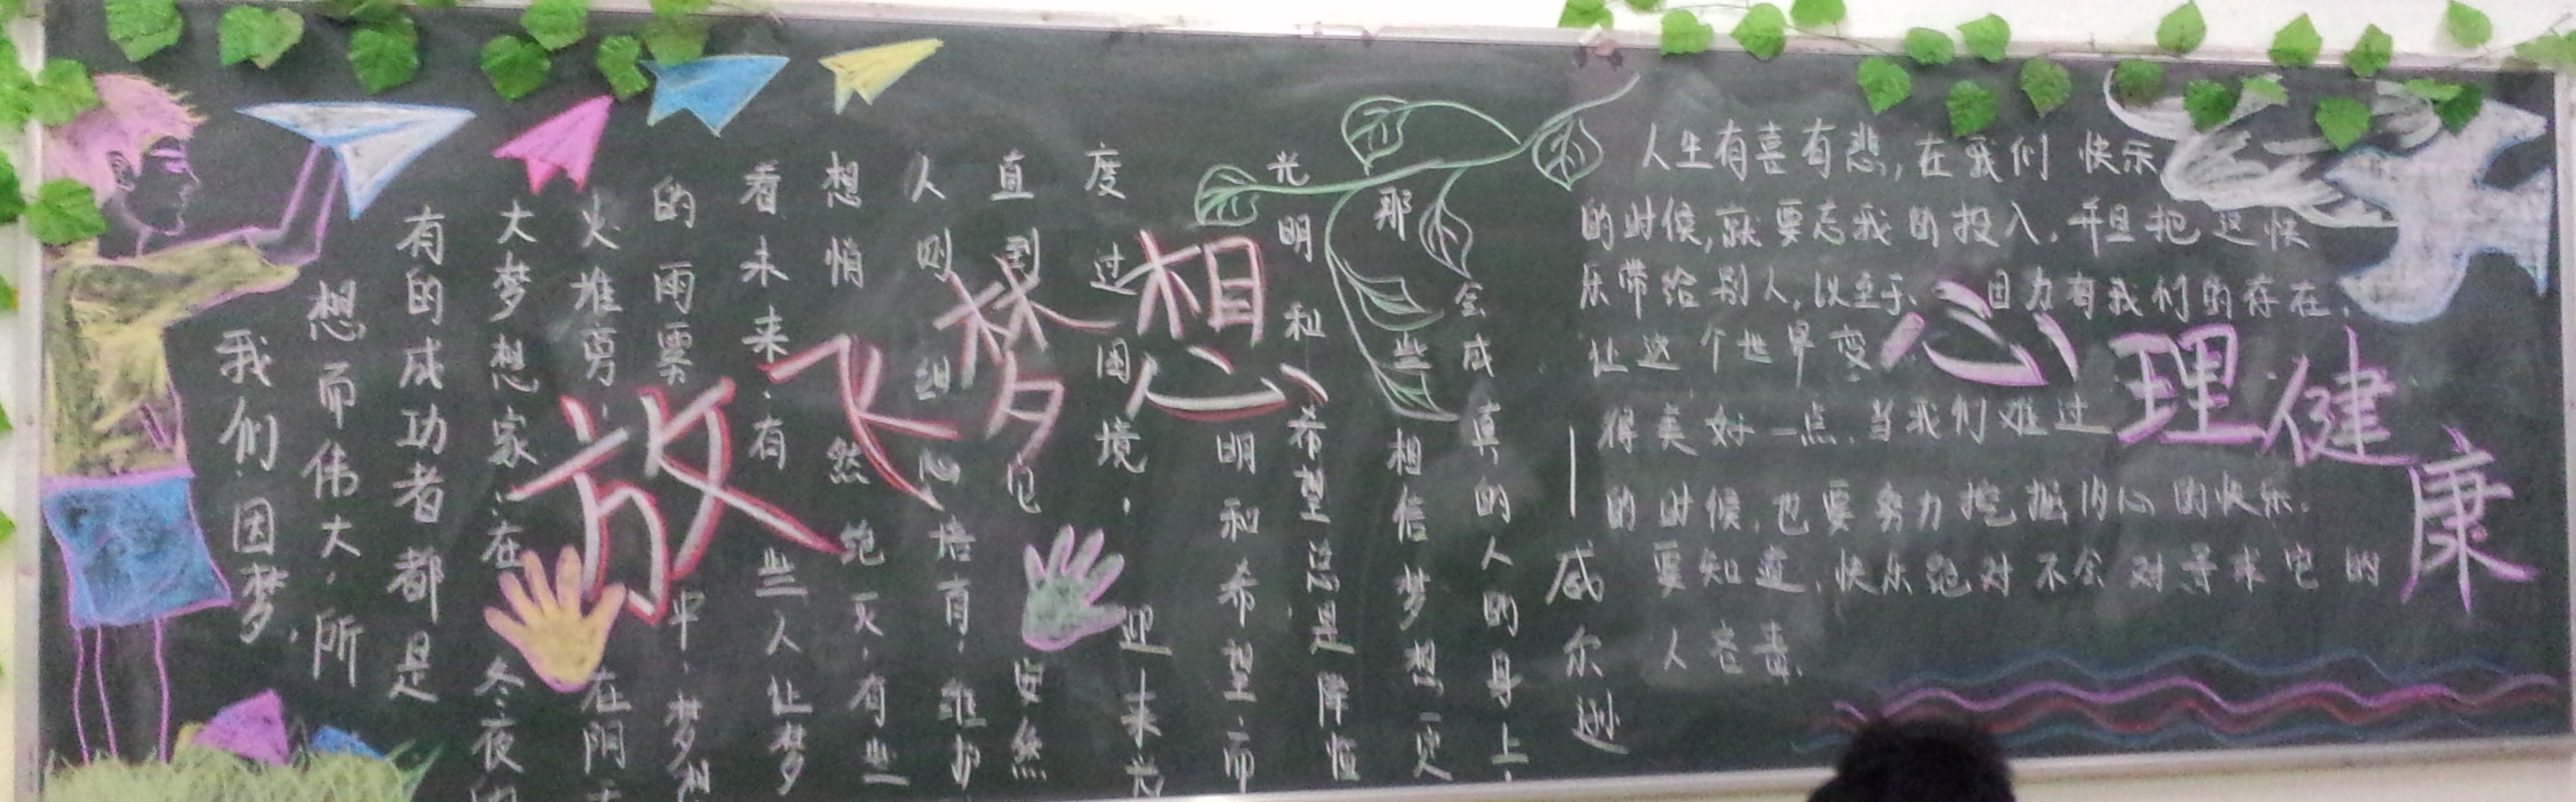 放飞梦想
我们因梦,
想而伟大,所
有的成功者都是
大梦想家:在冬夜的
火堆旁,在阴天
的雨雾中,梦想
看未来.有些人让梦
想悄然绝灭,有些
人则细心培育,维护
直到它安然
度过困境,迎来光
明和希望,而
光明和希望总是降临
那些相信梦想一定
会成真的人的身上.
—威尔逊
心理健康
人生有喜有悲,在我们快乐
的时候,就要忘我的投入.并且把这快
乐带给别人,以至于、因为有我们的存在.
让这个世界变
得美好一点.当我们难过
的时候,也要努力挖掘内心的快乐.
要知道,快乐绝对不会对寻求它的
人吝啬.